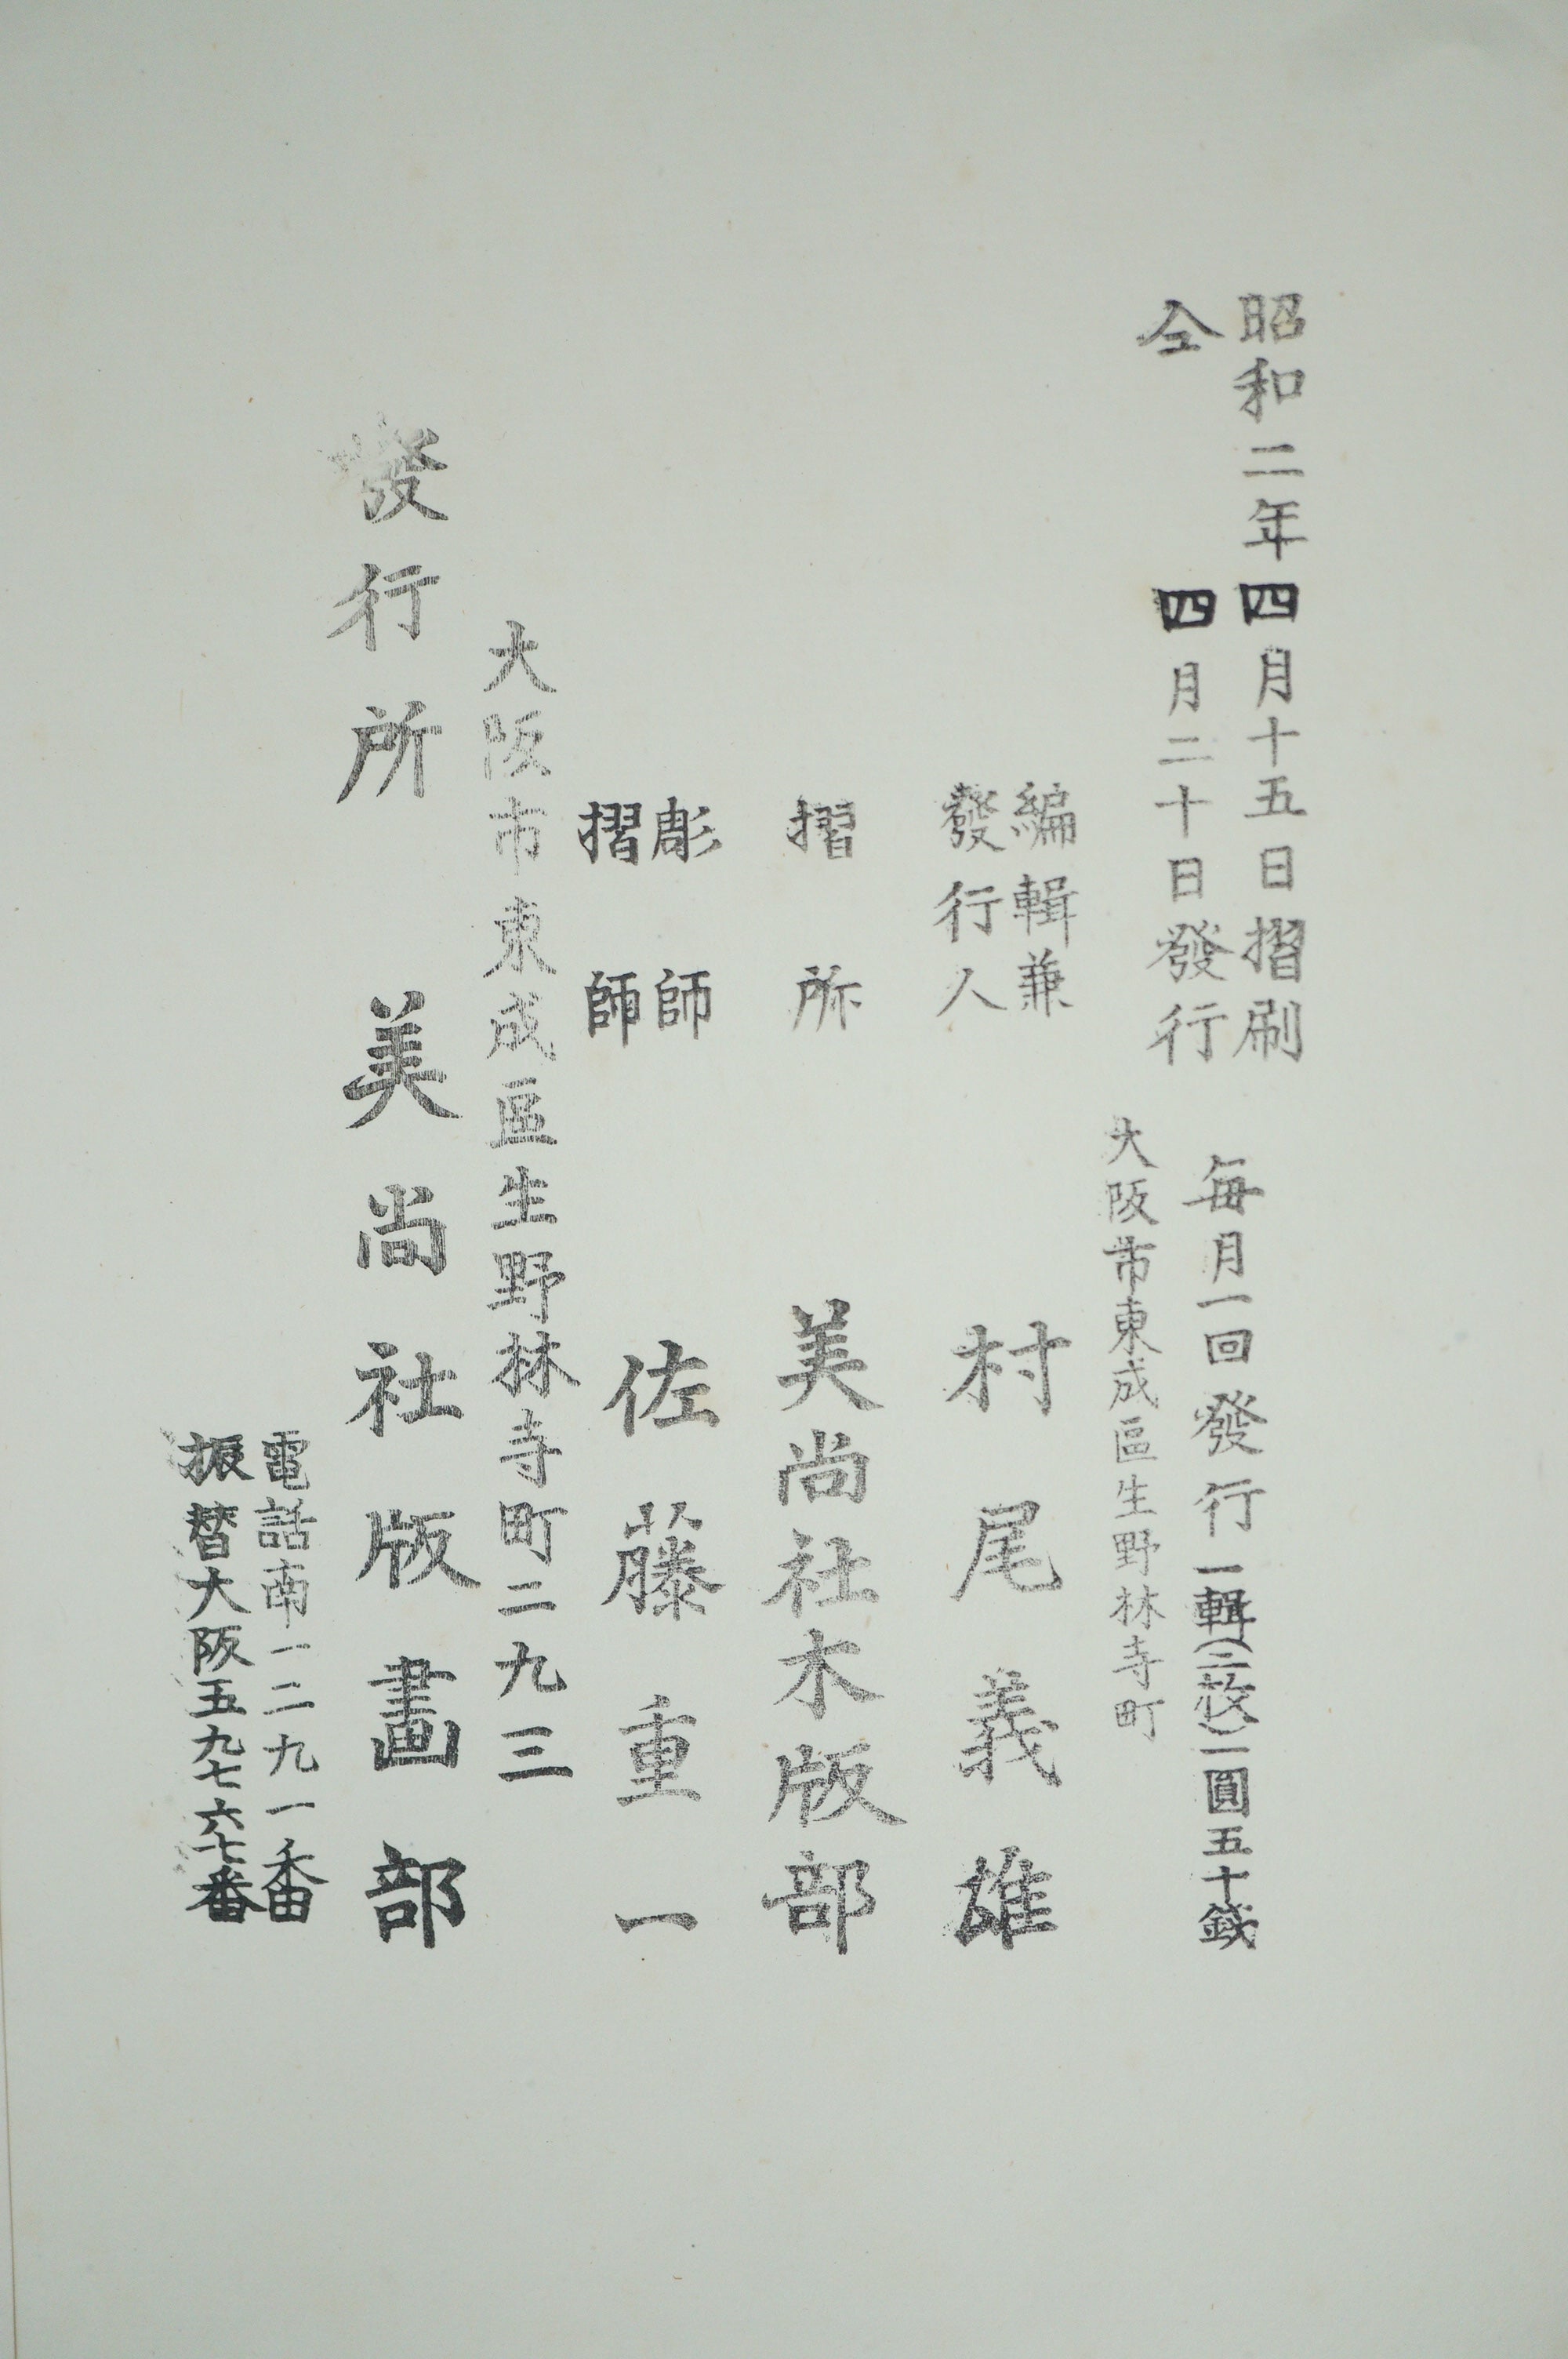 昭和二年四月十五日摺刷
仝四月二十日發行
每月一回發行一輯(三枚)一圓五十錢
大阪市東成區生野林寺町
編輯兼
發行人
村尾義雄
摺所
美尚社木版部
彫師
摺師
佐藤重一
大阪市東成區生野林寺町二九三
發行所
美尚社版畫部
電話南一二九一番
振替大阪五九七六七番